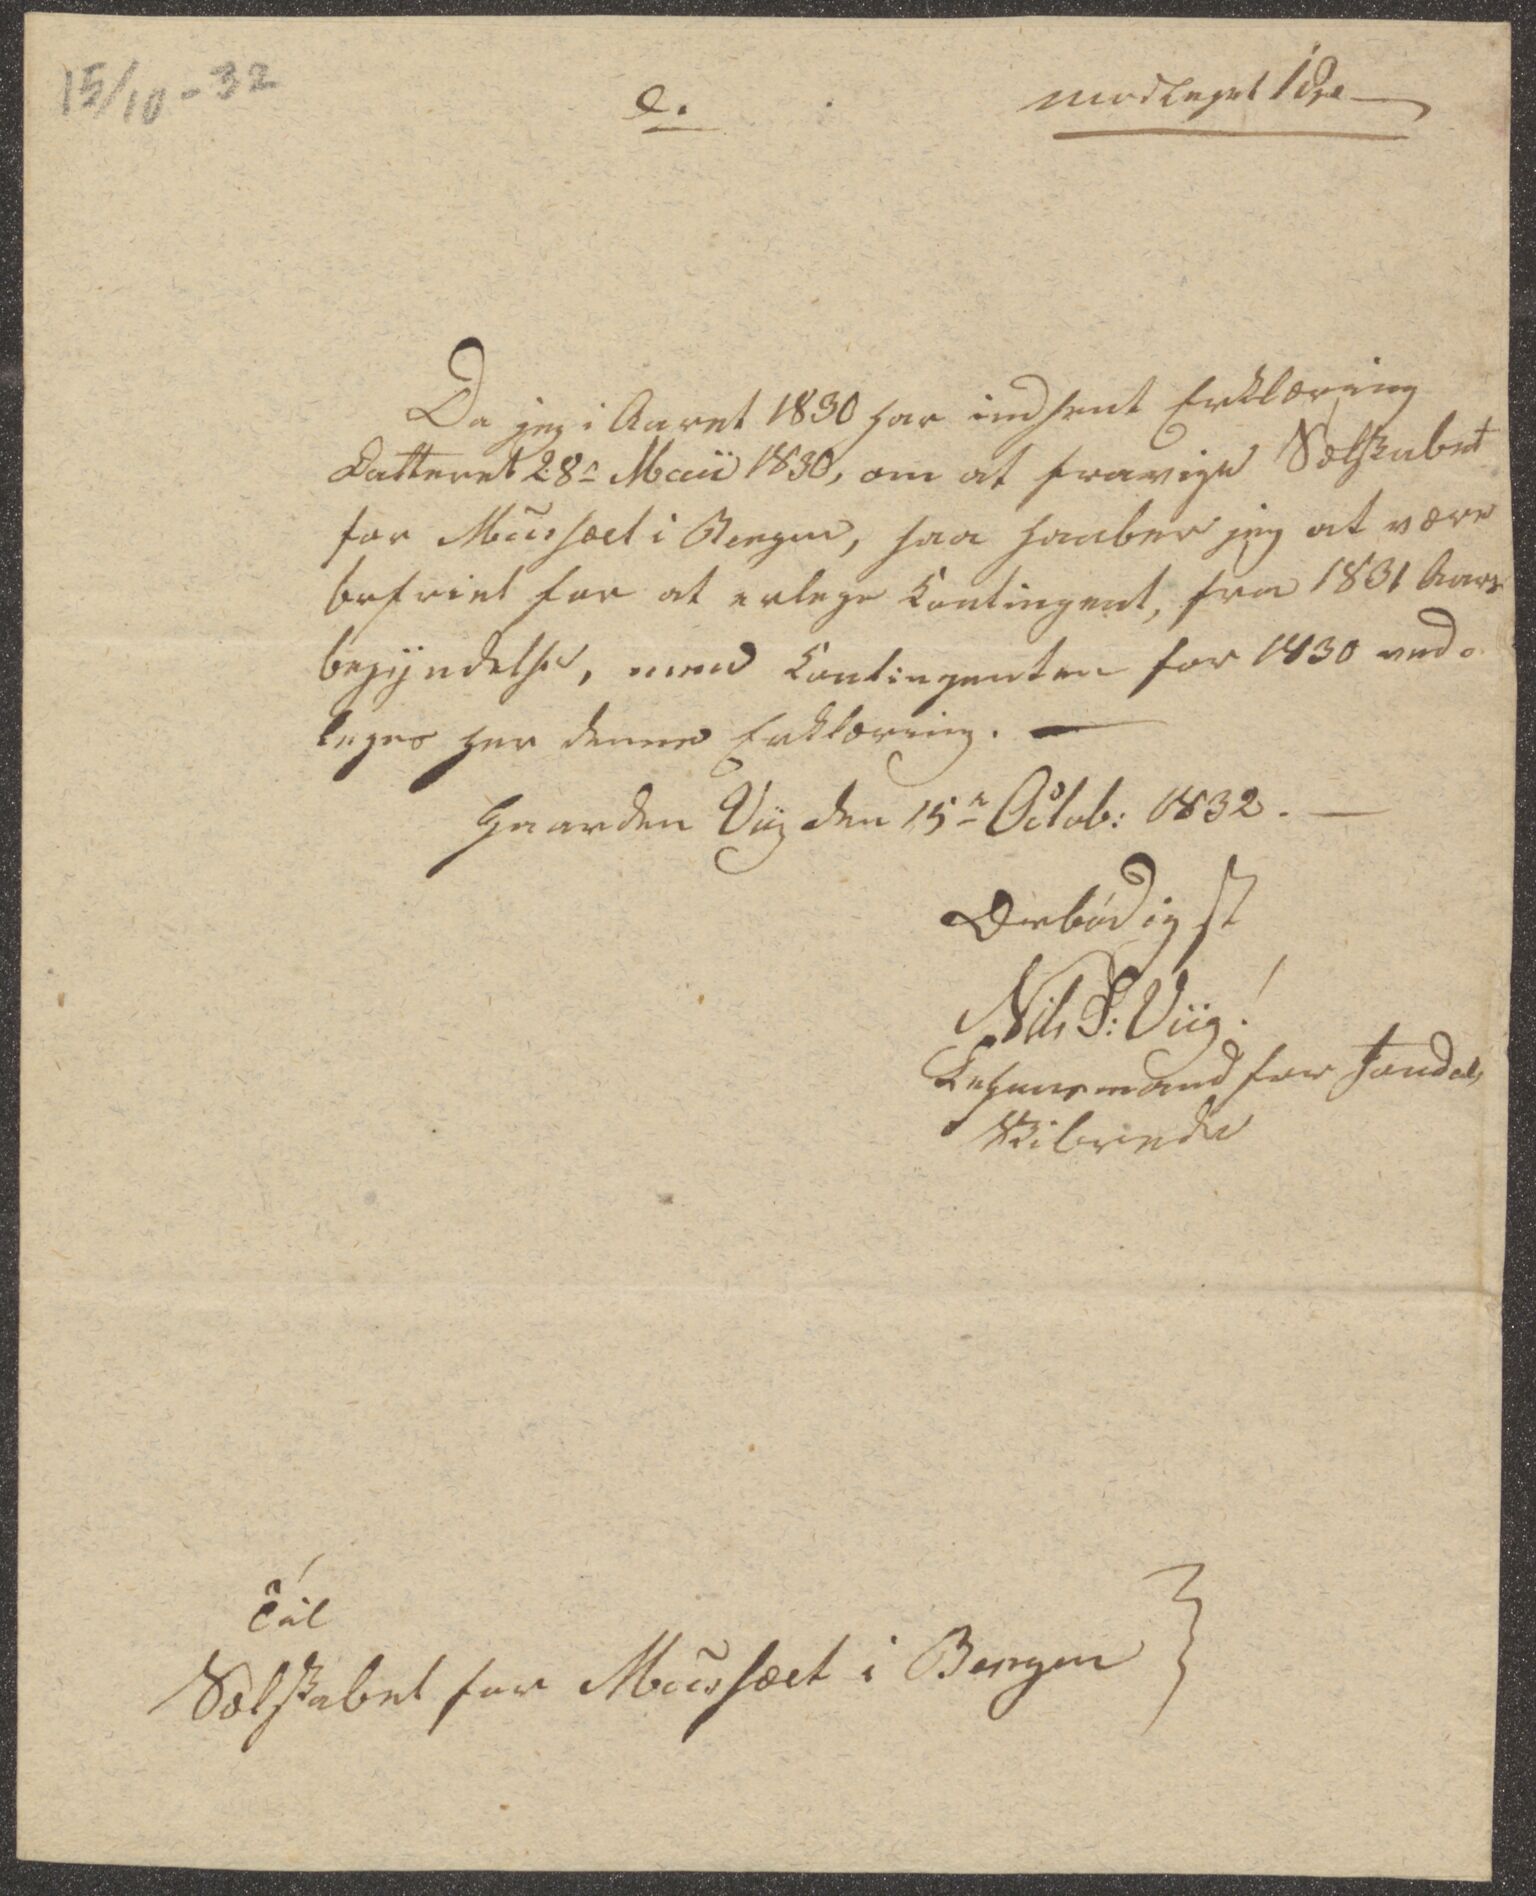 15/10 - 32
e.
modtaget 1 Sp
Da jeg i Aaret 1830 har indsent Erklæring
Datteret 28n Maii 1830, om at fravige Sælskabet
for Muusæet i Bergen, saa haaber jeg at være
befriet for at erlege Contingent, fra 1831 Aars
begÿndelse, men Contingenten for 1830 ved-
leges her denne Erklæring. —
Gaarden Viig den 15n Octob: 1832. —
Ærbødigst
Nils S: Viig!
Lehnsmand for Jondals
Skibrede
Til
Sælskabet for Muusæet i Bergen